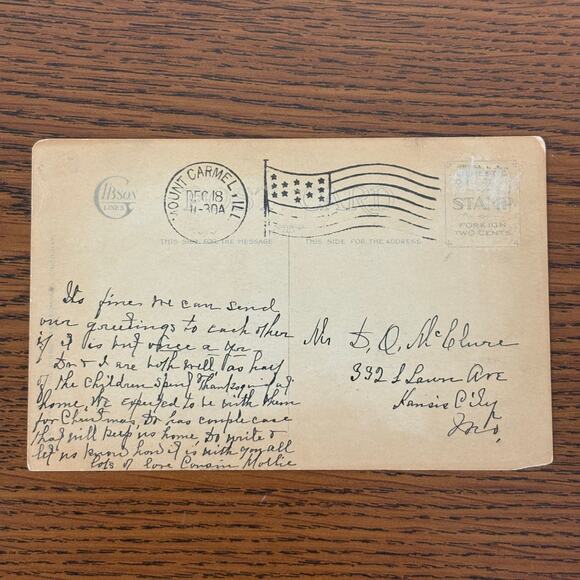 GIBSON
LINES
MOUNT CARMEL, ILL
DEC 18
11-30A
CARD
THIS SIDE FOR THE MESSAGE
THIS SIDE FOR THE ADDRESS
DOMESTIC
STAMP
FOREIGN
TWO CENTS
Its fine we can send
our greetings to each other
if it is but once a yr
Dr & I are both well as half
of the children Spent Thanksgiving at
home, We expected to be with them
for Christmas, Dr has couple case
that will keep us home, Do write &
let us know how it is with you all
lots of love Cousin Mollie
Mrs D. O. McClure
332 S Lawn Ave
Kansis City
Mo,